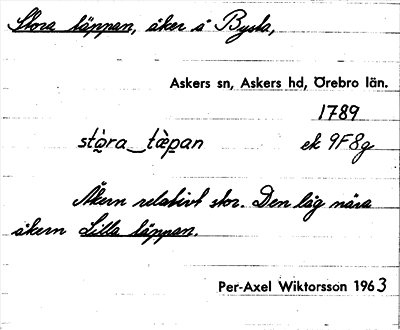 Stora täppan, åker å Bysta,
Askers sn, Askers hd, Örebro län.
1789
stò̱ra_tæ̀pan ek 9F8g
Åkern relativt stor. Den låg nära
åkern Lilla täppan.
Per-Axel Wiktorsson 1963